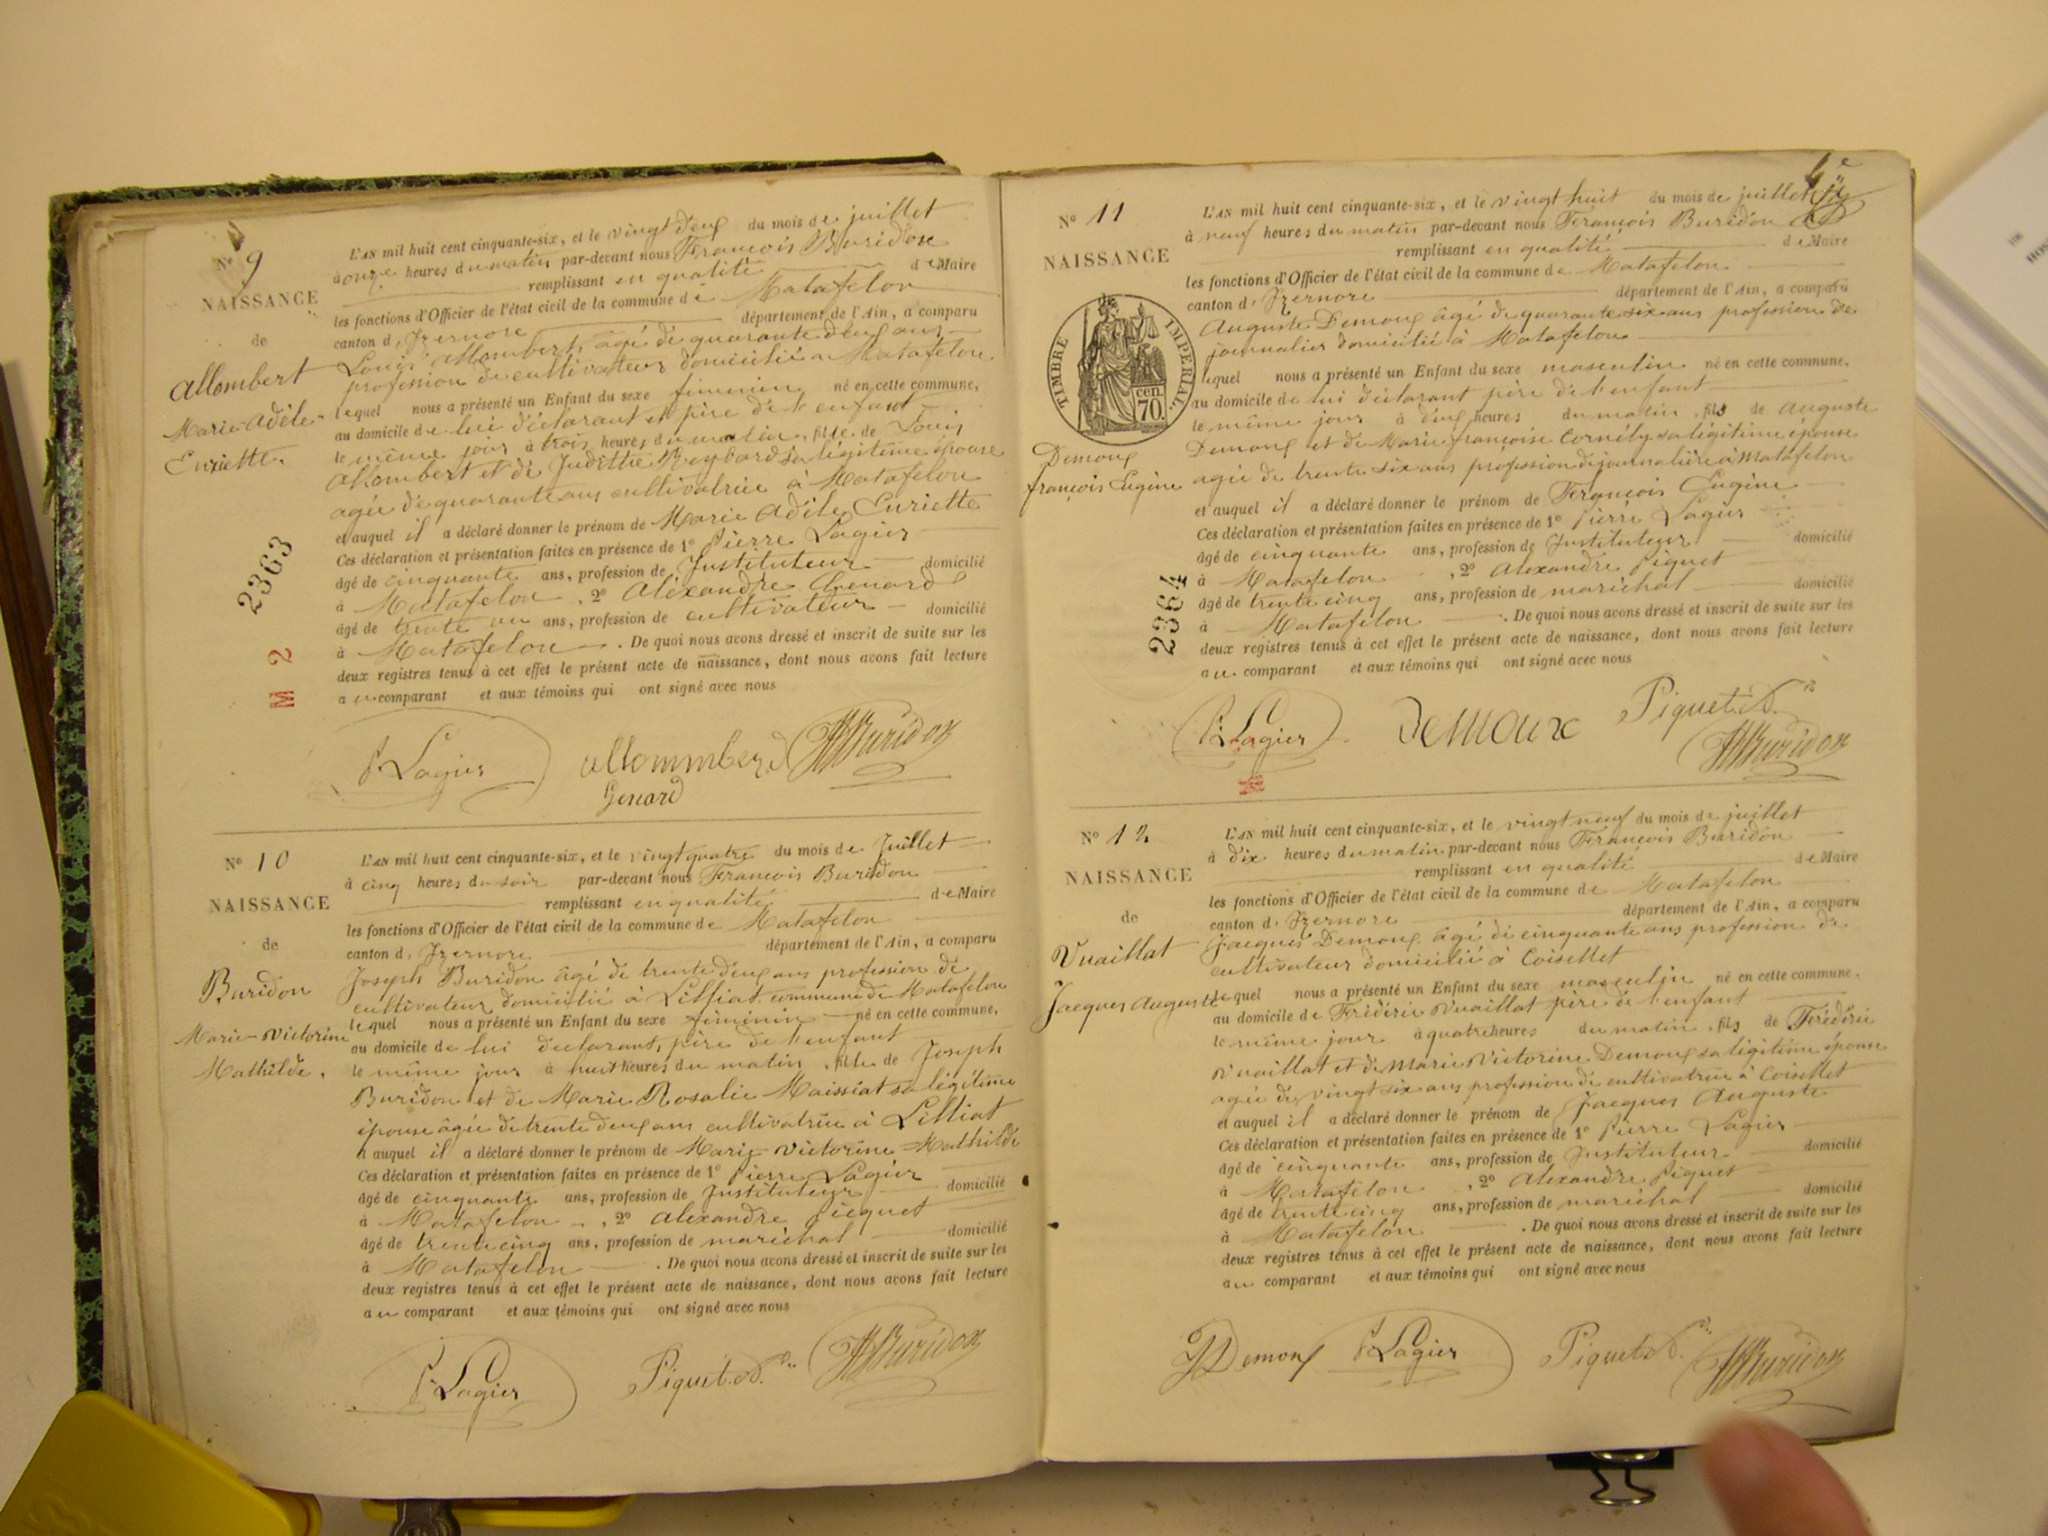 N° 9
NAISSANCE
de
Allombert
Marie Adèle
Euriette.
2363
M 2
L'AN mil huit cent cinquante-six, et le vingt deux du mois de juillet
à onze heures du matin par-devant nous François Buridon
remplissant en qualité de Maire
les fonctions d'Officier de l'état civil de la commune de Matafelon
canton d'Izernore département de l'Ain, a comparu
Louis Allombert, âgé de quarante deux ans
profession de cultivateur domicilié à Matafelon
lequel nous a présenté un Enfant du sexe féminin né en cette commune,
au domicile de lui déclarant et père de l'enfant
le même jour à trois heures du matin, fille de Louis
Allombert et de Judithe Reybard sa légitime épouse
agée de quarante ans cultivatrice à Matafelon
et auquel il a déclaré donner le prénom de Marie Adèle Euriette
Ces déclaration et présentation faites en présence de 1° Pierre Lagier
âgé de cinquante ans, profession de Instituteur domicilié
à Matafelon, 2° Alexandre Genard
âgé de trente un ans, profession de cultivateur domicilié
à Matafelon. De quoi nous avons dressé et inscrit de suite sur les
deux registres tenus à cet effet le présent acte de naissance, dont nous avons fait lecture
au comparant et aux témoins qui ont signé avec nous
P. Lagier allommberd Buridon
Genard
N° 10
NAISSANCE
de
Buridon
Marie-Victorine
Mathilde.
L'AN mil huit cent cinquante-six, et le vingt quatre du mois de Juillet
à cinq heures du soir par-devant nous François Buridon
remplissant en qualité de Maire
les fonctions d'Officier de l'état civil de la commune de Matafelon
canton d'Izernore département de l'Ain, a comparu
Joseph Buridon âgé de trente deux ans profession de
cultivateur domicilié à Lilliat commune de Matafelon
lequel nous a présenté un Enfant du sexe féminin né en cette commune,
au domicile de lui déclarant, père de l'enfant
le même jour à huit heures du matin, fille de Joseph
Buridon et de Marie Rosalie Maissiat sa légitime
épouse âgée de trente deux ans cultivatrice à Lilliat
à auquel il a déclaré donner le prénom de Marie-Victorine Mathilde
Ces déclaration et présentation faites en présence de 1° Pierre Lagier
âgé de cinquante ans, profession de Instituteur domicilié
à Matafelon, 2° Alexandre Picquet
âgé de trente cinq ans, profession de maréchal domicilié
à Matafelon. De quoi nous avons dressé et inscrit de suite sur les
deux registres tenus à cet effet le présent acte de naissance, dont nous avons fait lecture
au comparant et aux témoins qui ont signé avec nous
P. Lagier Piquet A. Buridon
N° 11
NAISSANCE
TIMBRE IMPÉRIAL
70. cen
Demoux
françois Eugène
2364
L'AN mil huit cent cinquante-six, et le vingt huit du mois de juillet
à neuf heures du matin par-devant nous François Buridon
remplissant en qualité de Maire
les fonctions d'Officier de l'état civil de la commune de Matafelon
canton d'Izernore département de l'Ain, a comparu
Auguste Demoux âgé de quarante six ans profession de
journalier domicilié à Matafelon
lequel nous a présenté un Enfant du sexe masculin né en cette commune,
au domicile de lui déclarant père de l'enfant
le même jour à deux heures du matin, fils de Auguste
Demoux et de Marie françoise Cornély sa légitime épouse
agée de trente six ans profession de journalière à Matafelon
et auquel il a déclaré donner le prénom de François Eugène
Ces déclaration et présentation faites en présence de 1° Pierre Lagier
âgé de cinquante ans, profession de Instituteur domicilié
à Matafelon, 2° Alexandre Piquet
âgé de trente cinq ans, profession de maréchal domicilié
à Matafelon. De quoi nous avons dressé et inscrit de suite sur les
deux registres tenus à cet effet le présent acte de naissance, dont nous avons fait lecture
au comparant et aux témoins qui ont signé avec nous
P. Lagier Demoux Piquet A. Buridon
N° 12
NAISSANCE
de
Vuaillat
Jacques Auguste
L'AN mil huit cent cinquante-six, et le vingt neuf du mois de juillet
à dix heures du matin par-devant nous François Buridon
remplissant en qualité de Maire
les fonctions d'Officier de l'état civil de la commune de Matafelon
canton d'Izernore département de l'Ain, a comparu
Jacques Demoux âgé de cinquante ans profession de
cultivateur domicilié à Coisellet
lequel nous a présenté un Enfant du sexe masculin né en cette commune,
au domicile de Frédéric Vuaillat père de l'enfant
le même jour à quatre heures du matin, fils de Frédéric
Vuaillat et de Marie Victorine Demoux sa légitime épouse
agée de vingt six ans profession de cultivatrice à Coisellet
et auquel il a déclaré donner le prénom de Jacques Auguste
Ces déclaration et présentation faites en présence de 1° Pierre Lagier
âgé de cinquante ans, profession de Instituteur domicilié
à Matafelon, 2° Alexandre Piquet
âgé de trente cinq ans, profession de maréchal domicilié
à Matafelon. De quoi nous avons dressé et inscrit de suite sur les
deux registres tenus à cet effet le présent acte de naissance, dont nous avons fait lecture
au comparant et aux témoins qui ont signé avec nous
J Demoux P. Lagier Piquet A. Buridon